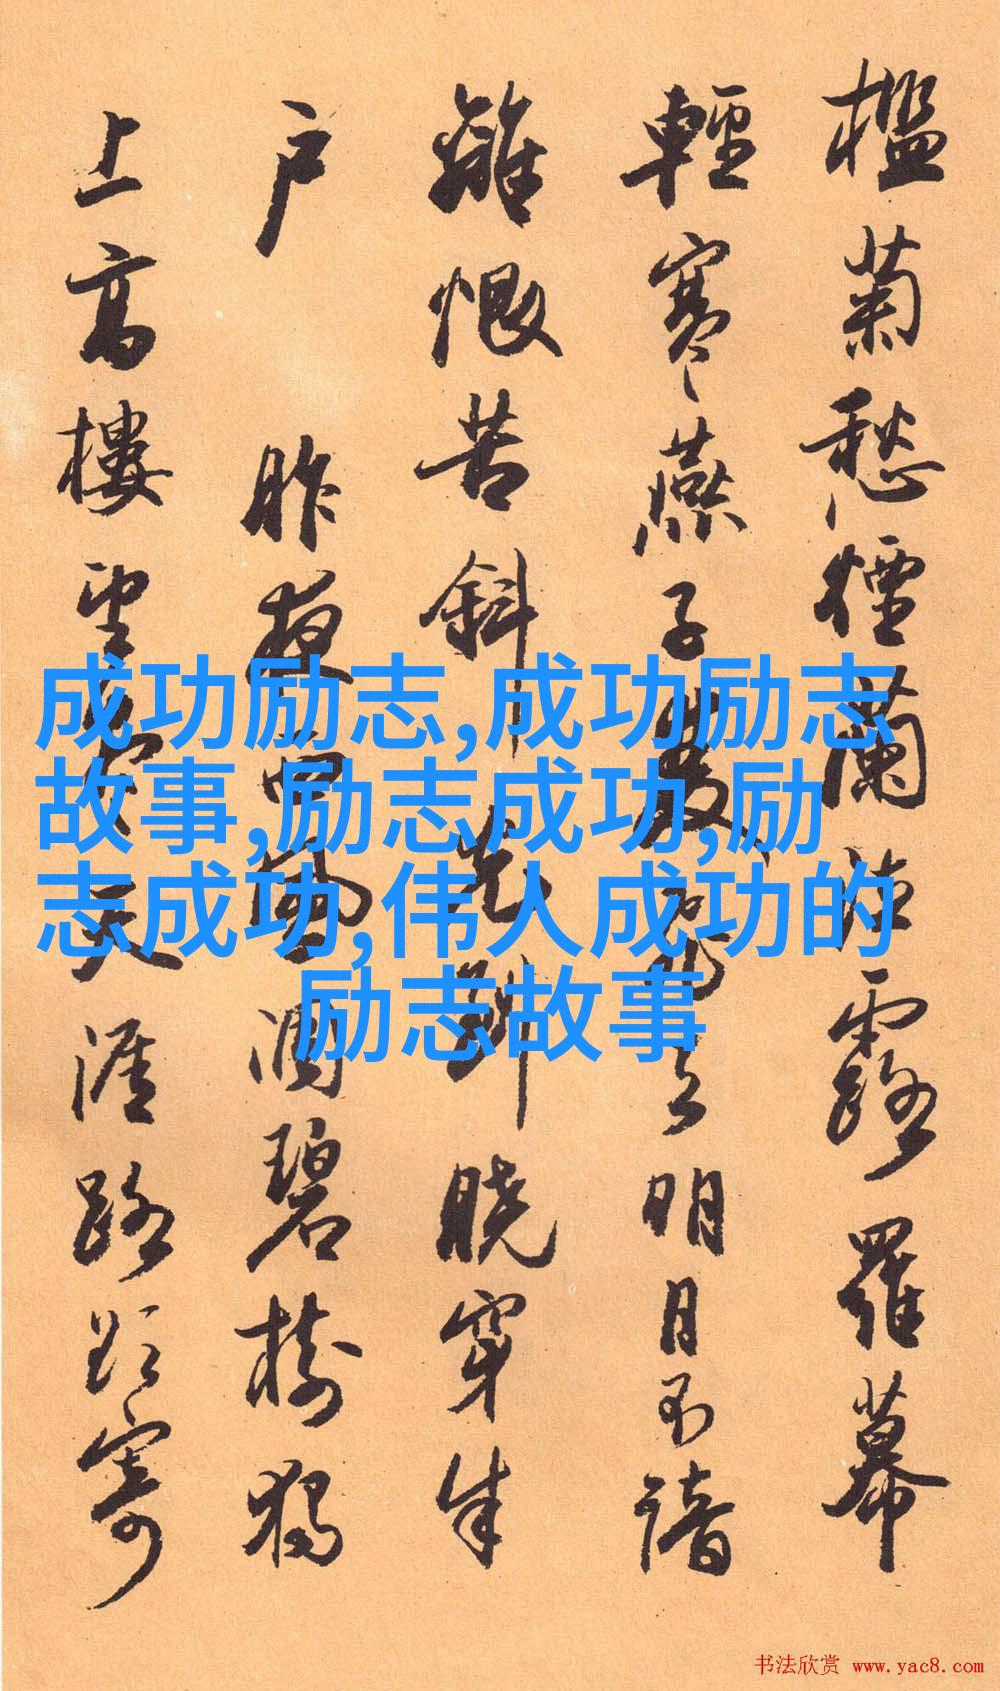 檻菊愁煙蘭泣露羅幕
輕寒燕子雙飛去明月不諳
離恨苦斜光到曉穿朱
户 昨夜西風凋碧樹獨
上高樓望盡天涯路欲寄
成功励志,成功励志
故事,励志成功,励
志成功,伟人成功的
励志故事
书法欣赏 www.yac8.com